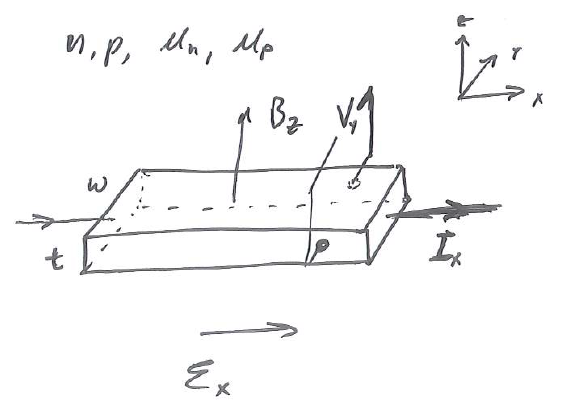 n, p, μn, μp
z
Y
x
Bz
Vy
w
t
Ix
Ɛx